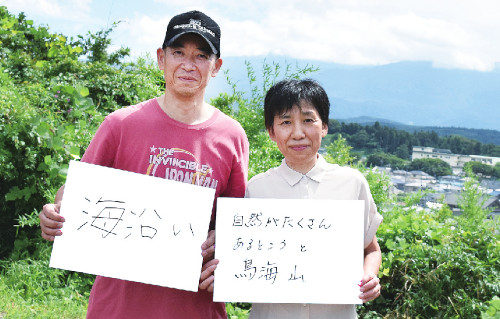 THE
INVINCIBLE
IRON MAN
海沿い
自然がたくさん
あるところと
鳥海山